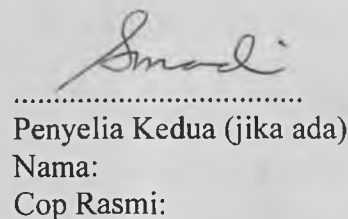 Penyelia Kedua (jika ada)
Nama:
Cop Rasmi: